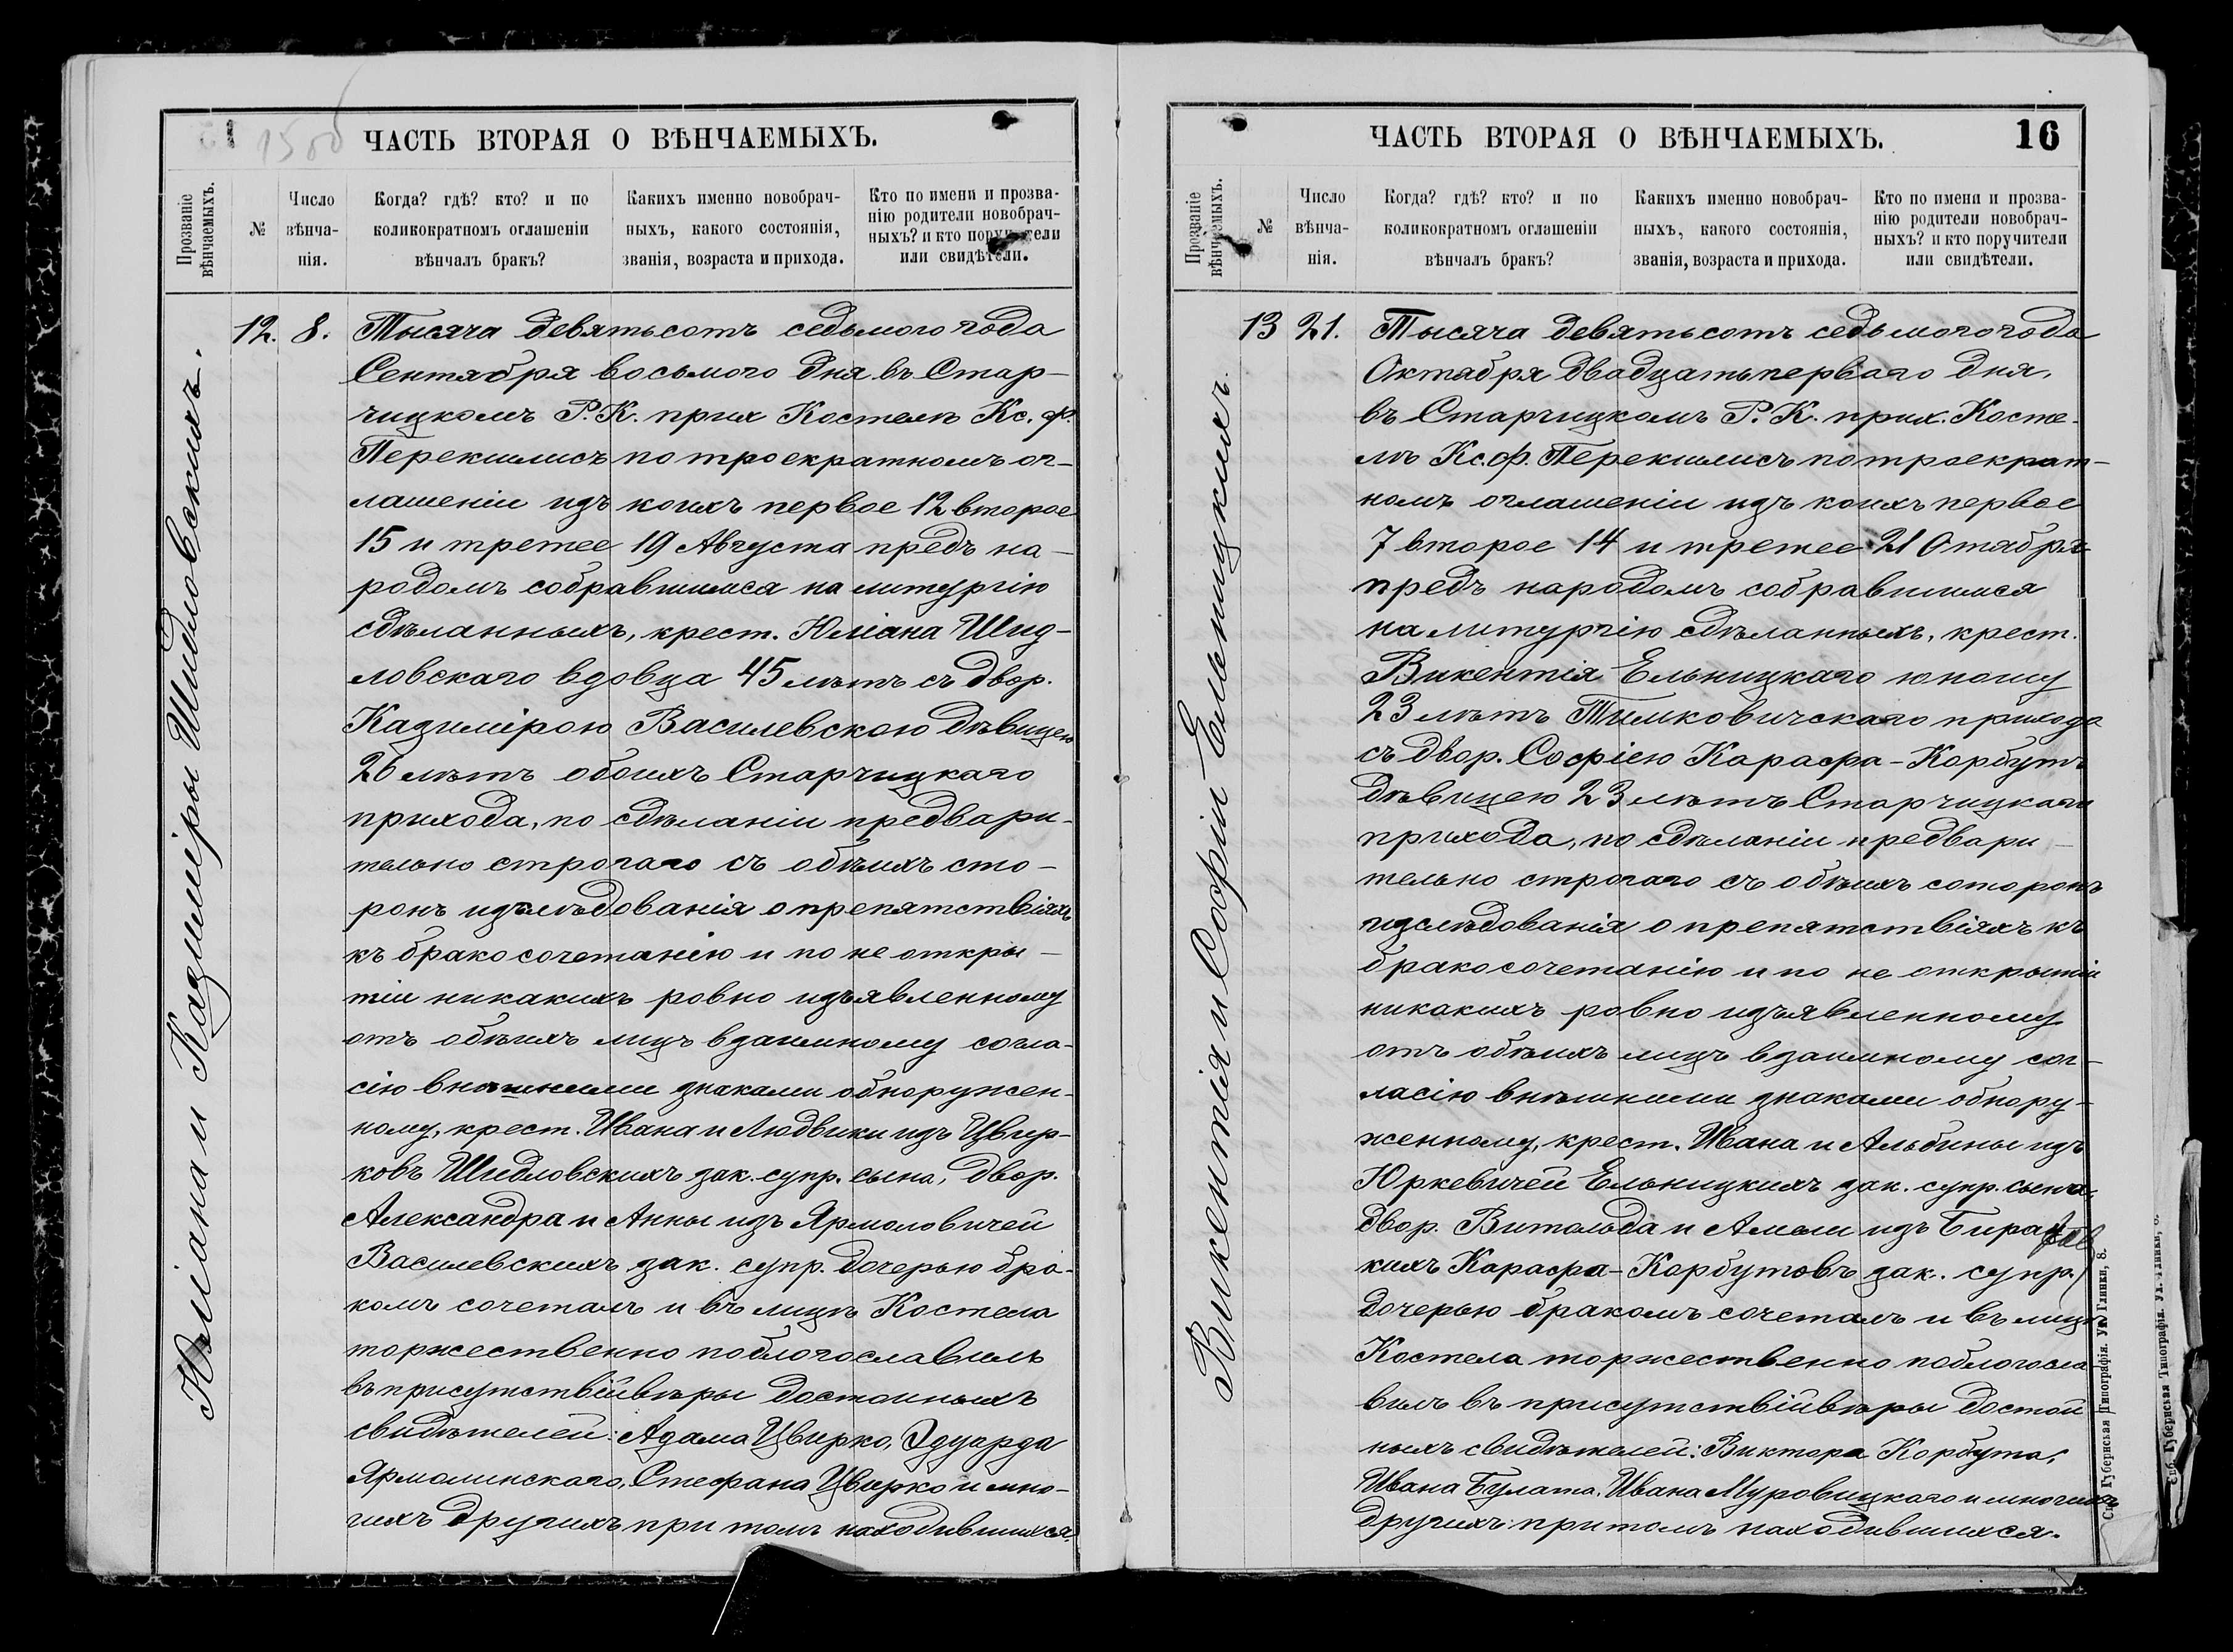 1500
ЧАСТЬ ВТОРАЯ О ВѢНЧАЕМЫХЪ.
Прозваніе вѣнчаемыхъ.
№
Число вѣнча-нія.
Когда? гдѣ? кто? и по
коликократномъ оглашеніи
вѣнчалъ бракъ?
Какихъ именно новобрач-
ныхъ, какого состоянія,
званія, возраста и прихода.
Кто по имени и прозва-
нію родители новобрач-
ныхъ? и кто поручители
или свидѣтели.
Юліана и Казиміры Шидловскихъ.
12. 8. Тысяча девятьсотъ седьмого года
Сентября восьмого дня въ Стар-
чицкомъ Р. К. прих Костелѣ Кс. Ф.
Перекшлисъ по троекратномъ ог-
лашеніи изъ коихъ первое 12 второе
15 и третее 19 Августа предъ на-
родомъ собравшимся на литургію
сдѣланныхъ, крест. Юліана Шид-
ловскаго вдовца 45 лѣтъ съ двор.
Казимірою Василевскою дѣвицею
26 лѣтъ обоихъ Старчицкаго
прихода, по сдѣланіи предвари-
тельно строгаго съ обѣихъ сто-
ронъ изълѣдованія о препятствіяхъ
къ бракосочетанію и по не откры-
тіи никакихъ ровно изъявленному
отъ обѣихъ лицъ взаимному согла-
сію внѣшними знаками обнаружен-
ному, крест. Ивана и Людвики изъ Цвир-
ковъ Шидловскихъ зак. супр. сына, двор.
Александра и Анны изъ Ярмоловичей
Василевскихъ зак. супр. дочерью бра-
комъ сочеталъ и въ лицѣ Костела
торжественно поблогославилъ
въ присутствіи вѣры достоиныхъ
свидѣтелей: Адама Цвирко, Эдуарда
Ярмолинскаго, Стефана Цвирко и мно-
гихъ другихъ при томъ находившихся.
ЧАСТЬ ВТОРАЯ О ВѢНЧАЕМЫХЪ.
16
Прозваніе вѣнчаемыхъ.
№
Число вѣнча-нія.
Когда? гдѣ? кто? и по
коликократномъ оглашеніи
вѣнчалъ бракъ?
Какихъ именно новобрач-
ныхъ, какого состоянія,
званія, возраста и прихода.
Кто по имени и прозва-
нію родители новобрач-
ныхъ? и кто поручители
или свидѣтели.
Викентія и Софіи Ельницкихъ.
13 21. Тысяча девятьсотъ седьмого года
Октября двадцатьперваго дня,
въ Старчицкомъ Р. К. прих. Косте-
лѣ Кс. Ф. Перекшлисъ по троекрат-
номъ оглашеніи изъ коихъ первое
7 второе 14 и третее 21 Отября
предъ народомъ собравшимся
на литургію сдѣланныхъ, крест.
Викентія Ельницкаго юношу
23 лѣтъ Тимковичскаго прихода
съ двор. Софіею Карафа-Корбутъ
дѣвицею 23 лѣтъ Старчицкаго
прихода, по сдѣланіи предвари-
тельно строгаго съ обѣихъ соторонъ
изслѣдованія о препятствіяхъ къ
бракосочетанію и по не открытіи
никакихъ ровно изъявленному
отъ обѣихъ лицъ взаимному сог-
ласію внѣшними знаками обнару-
женному, крест. Ивана и Альбины изъ
Юркевичей Ельницкихъ зак. супр. сына,
двор. Витольда и Амели изъ
кихъ Карафа-Корбутовъ зак. супр.
дочерью бракомъ сочеталъ и въ лицѣ
Костела торжественно поблогосла
вилъ въ присутствіи вѣры достой
ныхъ свидѣтелей: Виктора Корбута,
Ивана Булата, Ивана Муровицкаго и многихъ
другихъ при томъ находившихся.
Спб. Губернская Типографія. Ул. Глинки, 8.
Спб. Губернская Типографія. Ул. Глинки, 8.